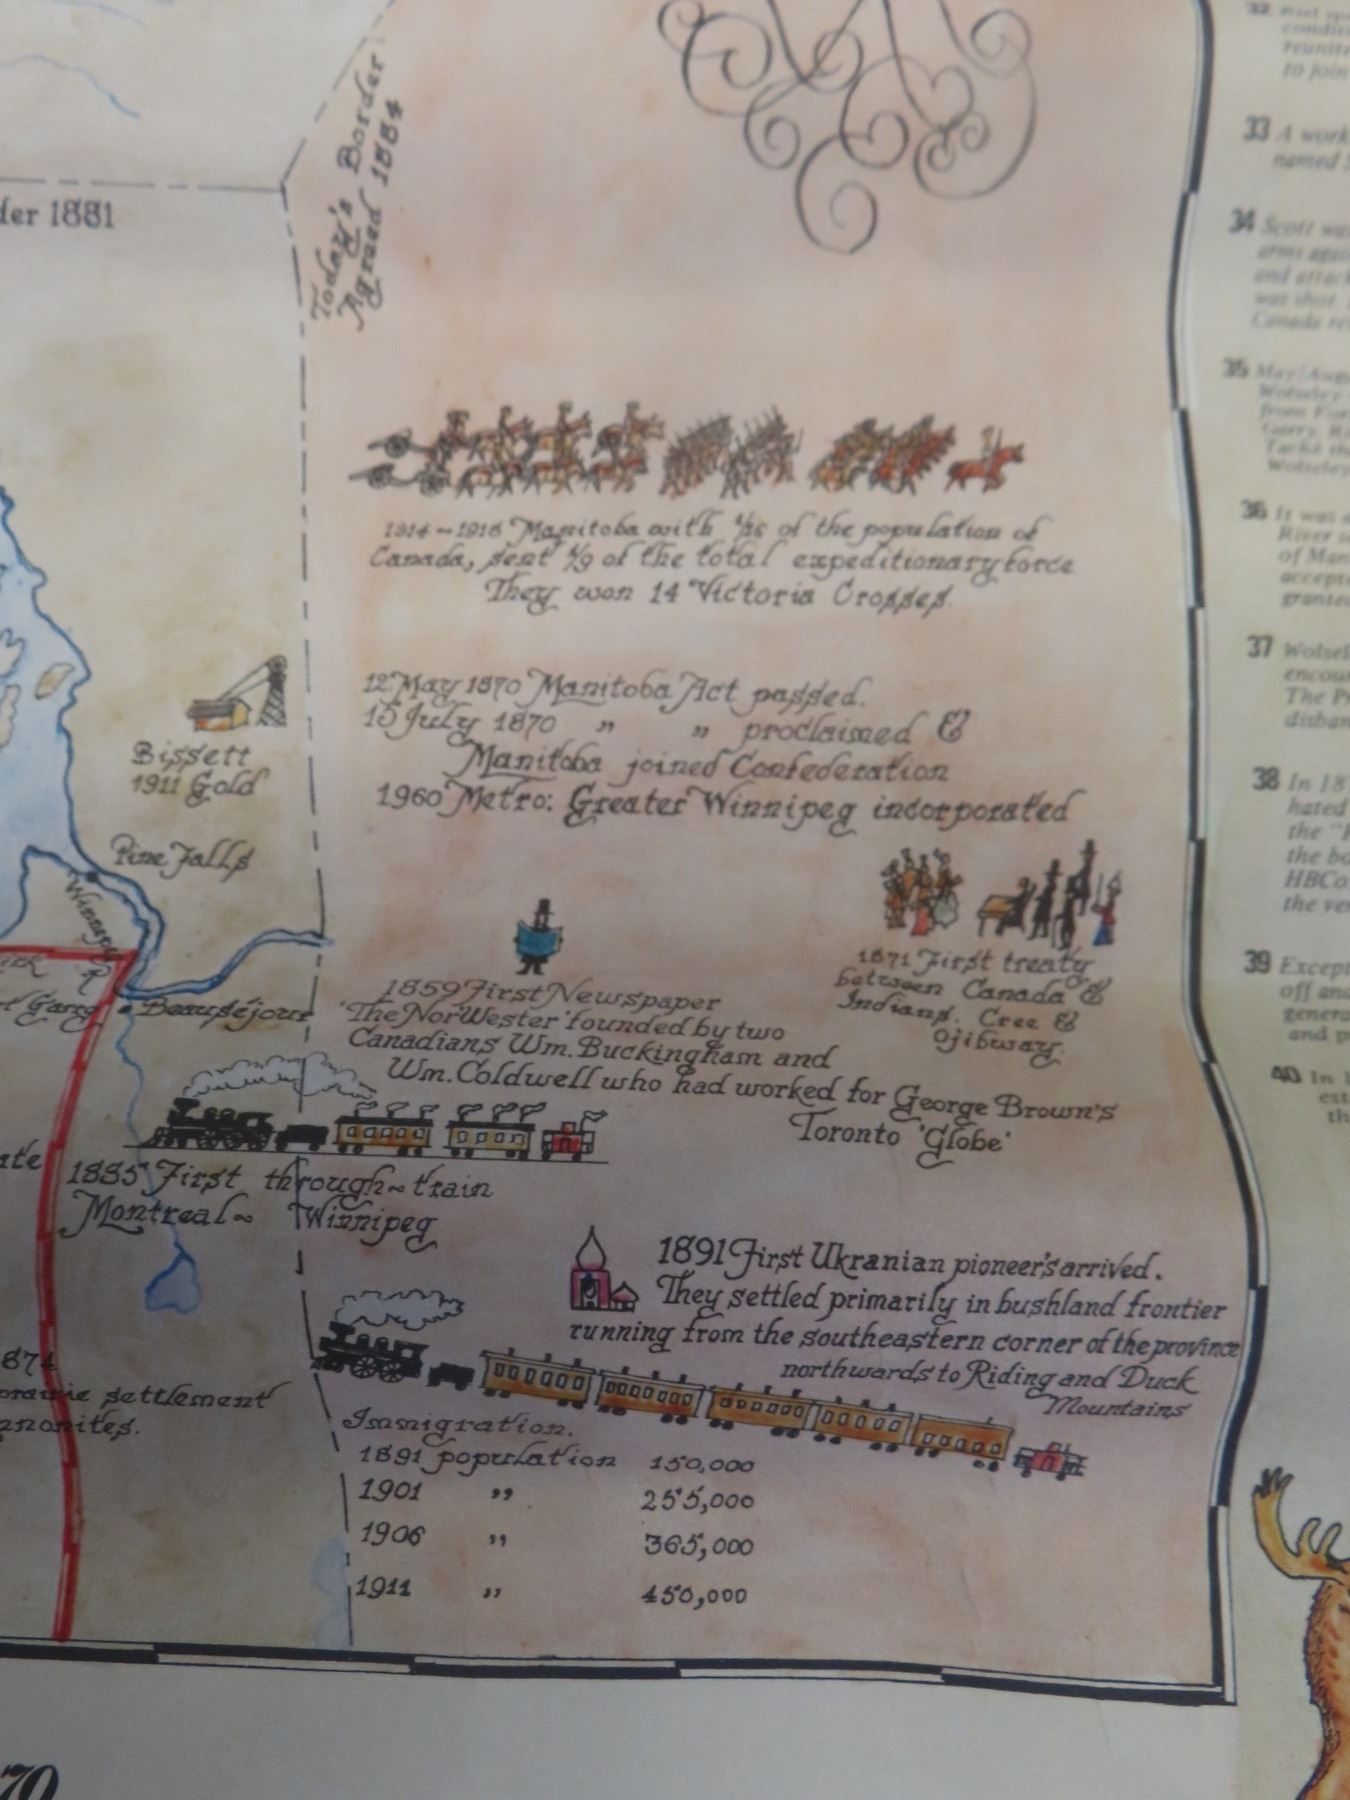 der 1881
Today's Border
Agreed 1884
1914~1918 Manitoba with 1/15 of the population of
Canada, sent 1/9 of the total expeditionary force
They won 14 Victoria Crosses.
Bissett
1911 Gold
Pine Falls
12 May 1870 Manitoba Act passed.
15 July 1870 " " proclaimed &
Manitoba joined Confederation
1960 Metro: Greater Winnipeg incorporated
Garry
Beauséjour
1859 First Newspaper
'The Nor'Wester' founded by two
Canadians Wm. Buckingham and
Wm. Coldwell who had worked for George Brown's
Toronto 'Globe'
1871 First treaty
between Canada &
Indians. Cree &
Ojibway.
1885 First through~train
Montreal~ Winnipeg
1891 First Ukranian pioneer's arrived.
They settled primarily in bushland frontier
running from the southeastern corner of the province
northwards to Riding and Duck
Mountains
874
prairie settlement
nnonites.
Immigration.
1891 population 150,000
1901 " 255,000
1906 " 365,000
1911 " 450,000
70
to join
33 A work
named S
34 Scott was
arms again
and attack
was shot.
Canada re
35 May/Aug
Wolseley
from For
Garry. Ri
Taché th
Wolseley
36 It was a
River s
of Man
accepte
grante
37 Wolsel
encou
The Pr
disban
38 In 18
hated
the "P
the bo
HBCo
the ve
39 Except
off and
genera
and p
40 In 1
est
th